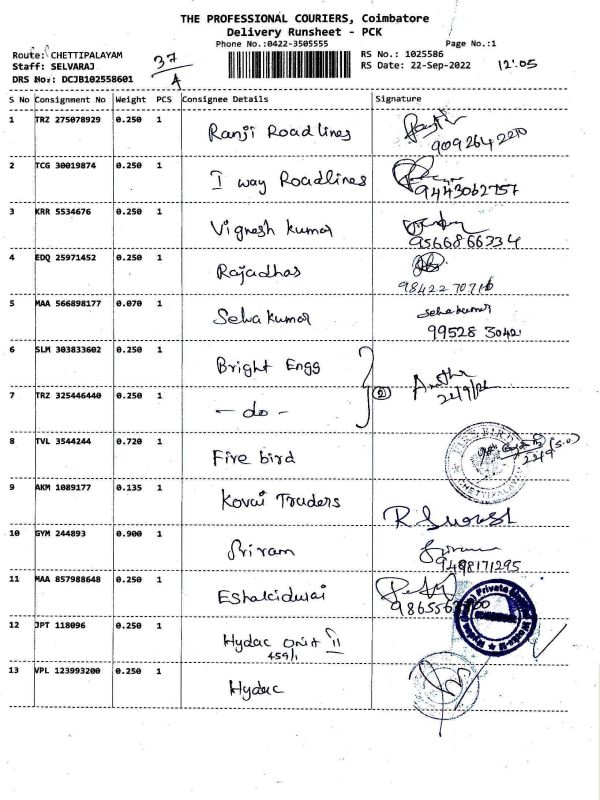 THE PROFESSIONAL COURIERS, Coimbatore
Delivery Runsheet - PCK
Phone No.:0422-3505555 Page No.:1
Route: CHETTIPALAYAM 37/4 RS No.: 1025586
Staff: SELVARAJ RS Date: 22-Sep-2022 12:05
DRS No: DCJB102558601
S No Consignment No Weight PCS Consignee Details Signature
1 TRZ 275078929 0.250 1 Ranji Roadlines
9092642210
2 TCG 30019874 0.250 1 I way Roadlines
9443062757
3 KRR 5534676 0.250 1 Vignesh kumar
9566866334
4 EDQ 25971452 0.250 1 Rajadhas
9842270716
5 MAA 566898177 0.070 1 Selva kumar Selvakumar
99528 3042
6 SLM 303833602 0.250 1 Bright Engg
7 TRZ 325446440 0.250 1 - do - 2 22/9/22
8 TVL 3544244 0.720 1 Fire bird FIRE BIRD 22/9
CHETTIPALAYAM
9 AKM 1089177 0.135 1 Kovai Traders R Suresh
10 GYM 244893 0.900 1 Sriram
9498171295
11 MAA 857988648 0.250 1 Eshakidurai
12 JPT 118096 0.250 1 Hydac Unit II
459/1
13 VPL 123993200 0.250 1 Hydac